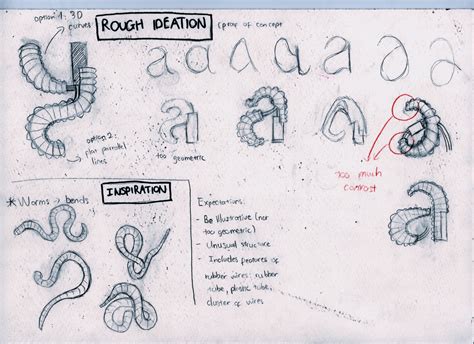 option 1: 3D
curves
ROUGH IDEATION
(prof of concept
a a a a a a a
y
option 2:
flat parallel
lines
a a a a
too geometric
too much
contrast
a
INSPIRATION
* Worms → bends
Expectations:
- Be Illustrative (not
too geometric)
- Unusual structure
- Includes features of
rubber wires: rubber
tube, plastic tube,
cluster of wires